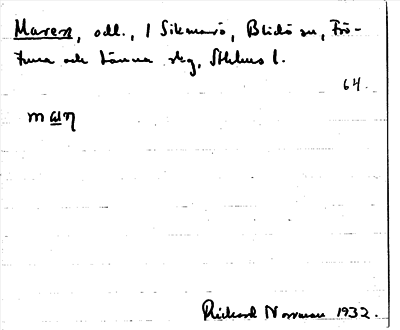 Maren, odl., 1 Sikmarö, Blidö sn, Frö-
tuna och Länna skg, Sthlms l.
64.
m
Rickard Norrman 1932.